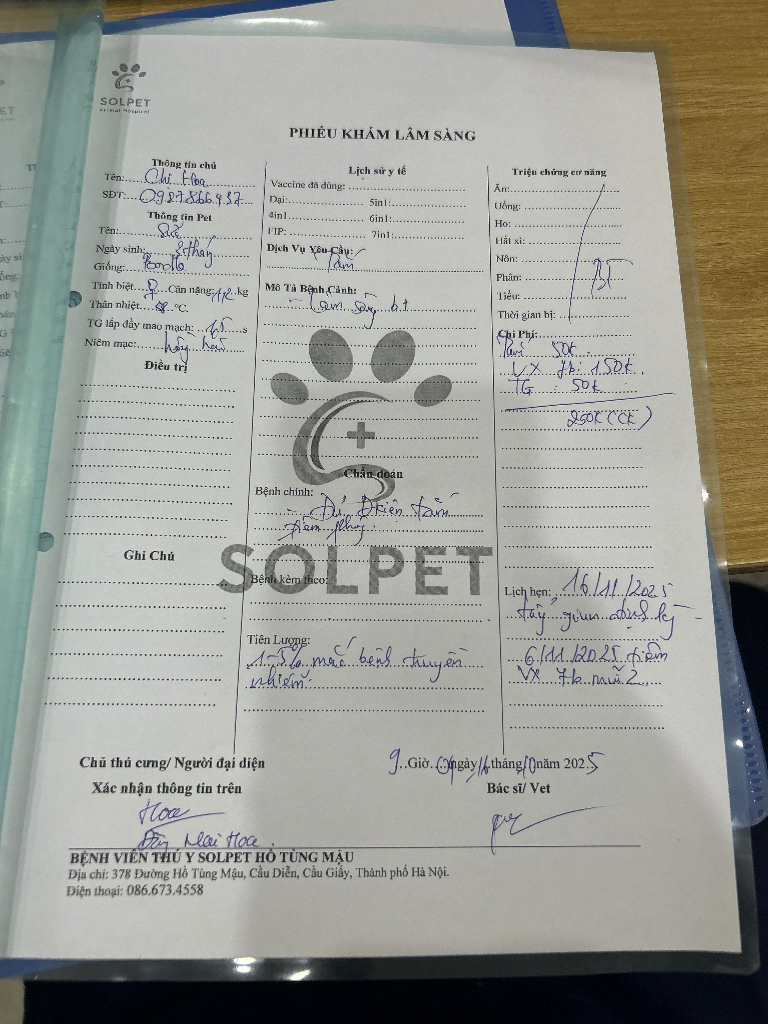 SOLPET
Animal Hospital
PHIẾU KHÁM LÂM SÀNG
Thông tin chủ
Tên: Chị Hoa
SĐT: 0987866437
Thông tin Pet
Tên:
Ngày sinh: 8 tháng
Giống: Poodle
Tính biệt ♀ Cân nặng: kg
Thân nhiệt °C.
TG lấp đầy mao mạch: 1,5 s
Niêm mạc: hồng hào
Điều trị
Ghi Chú
Lịch sử y tế
Vaccine đã dùng:
Dại: 5in1:
4in1 6in1:
FIP: 7in1:
Dịch Vụ Yêu Cầu:
Mô Tả Bệnh Cảnh:
- Lâm sàng bt
Chẩn đoán
Bệnh chính:
- Đủ điều kiện
tiêm phòng
SOLPET
Bệnh kèm theo:
Tiên Lượng:
1-5% mắc bệnh truyền
nhiễm.
Triệu chứng cơ năng
Ăn:
Uống:
Ho:
Hắt xì:
Nôn:
Phân: BT
Tiểu:
Thời gian bị:
Chi Phí:
50k
VX 7b: 150k
TG : 50k
250k (CK)
Lịch hẹn: 16/11/2025
tẩy giun định kỳ -
6/11/2025 tiêm
VX 7b mũi 2
Chủ thú cưng/ Người đại diện
Xác nhận thông tin trên
Hoa
Mai Hoa
9 Giờ ngày 16 tháng 10 năm 2025
Bác sĩ/ Vet
BỆNH VIỆN THÚ Y SOLPET HỒ TÙNG MẬU
Địa chỉ: 378 Đường Hồ Tùng Mậu, Cầu Diễn, Cầu Giấy, Thành phố Hà Nội.
Điện thoại: 086.673.4558